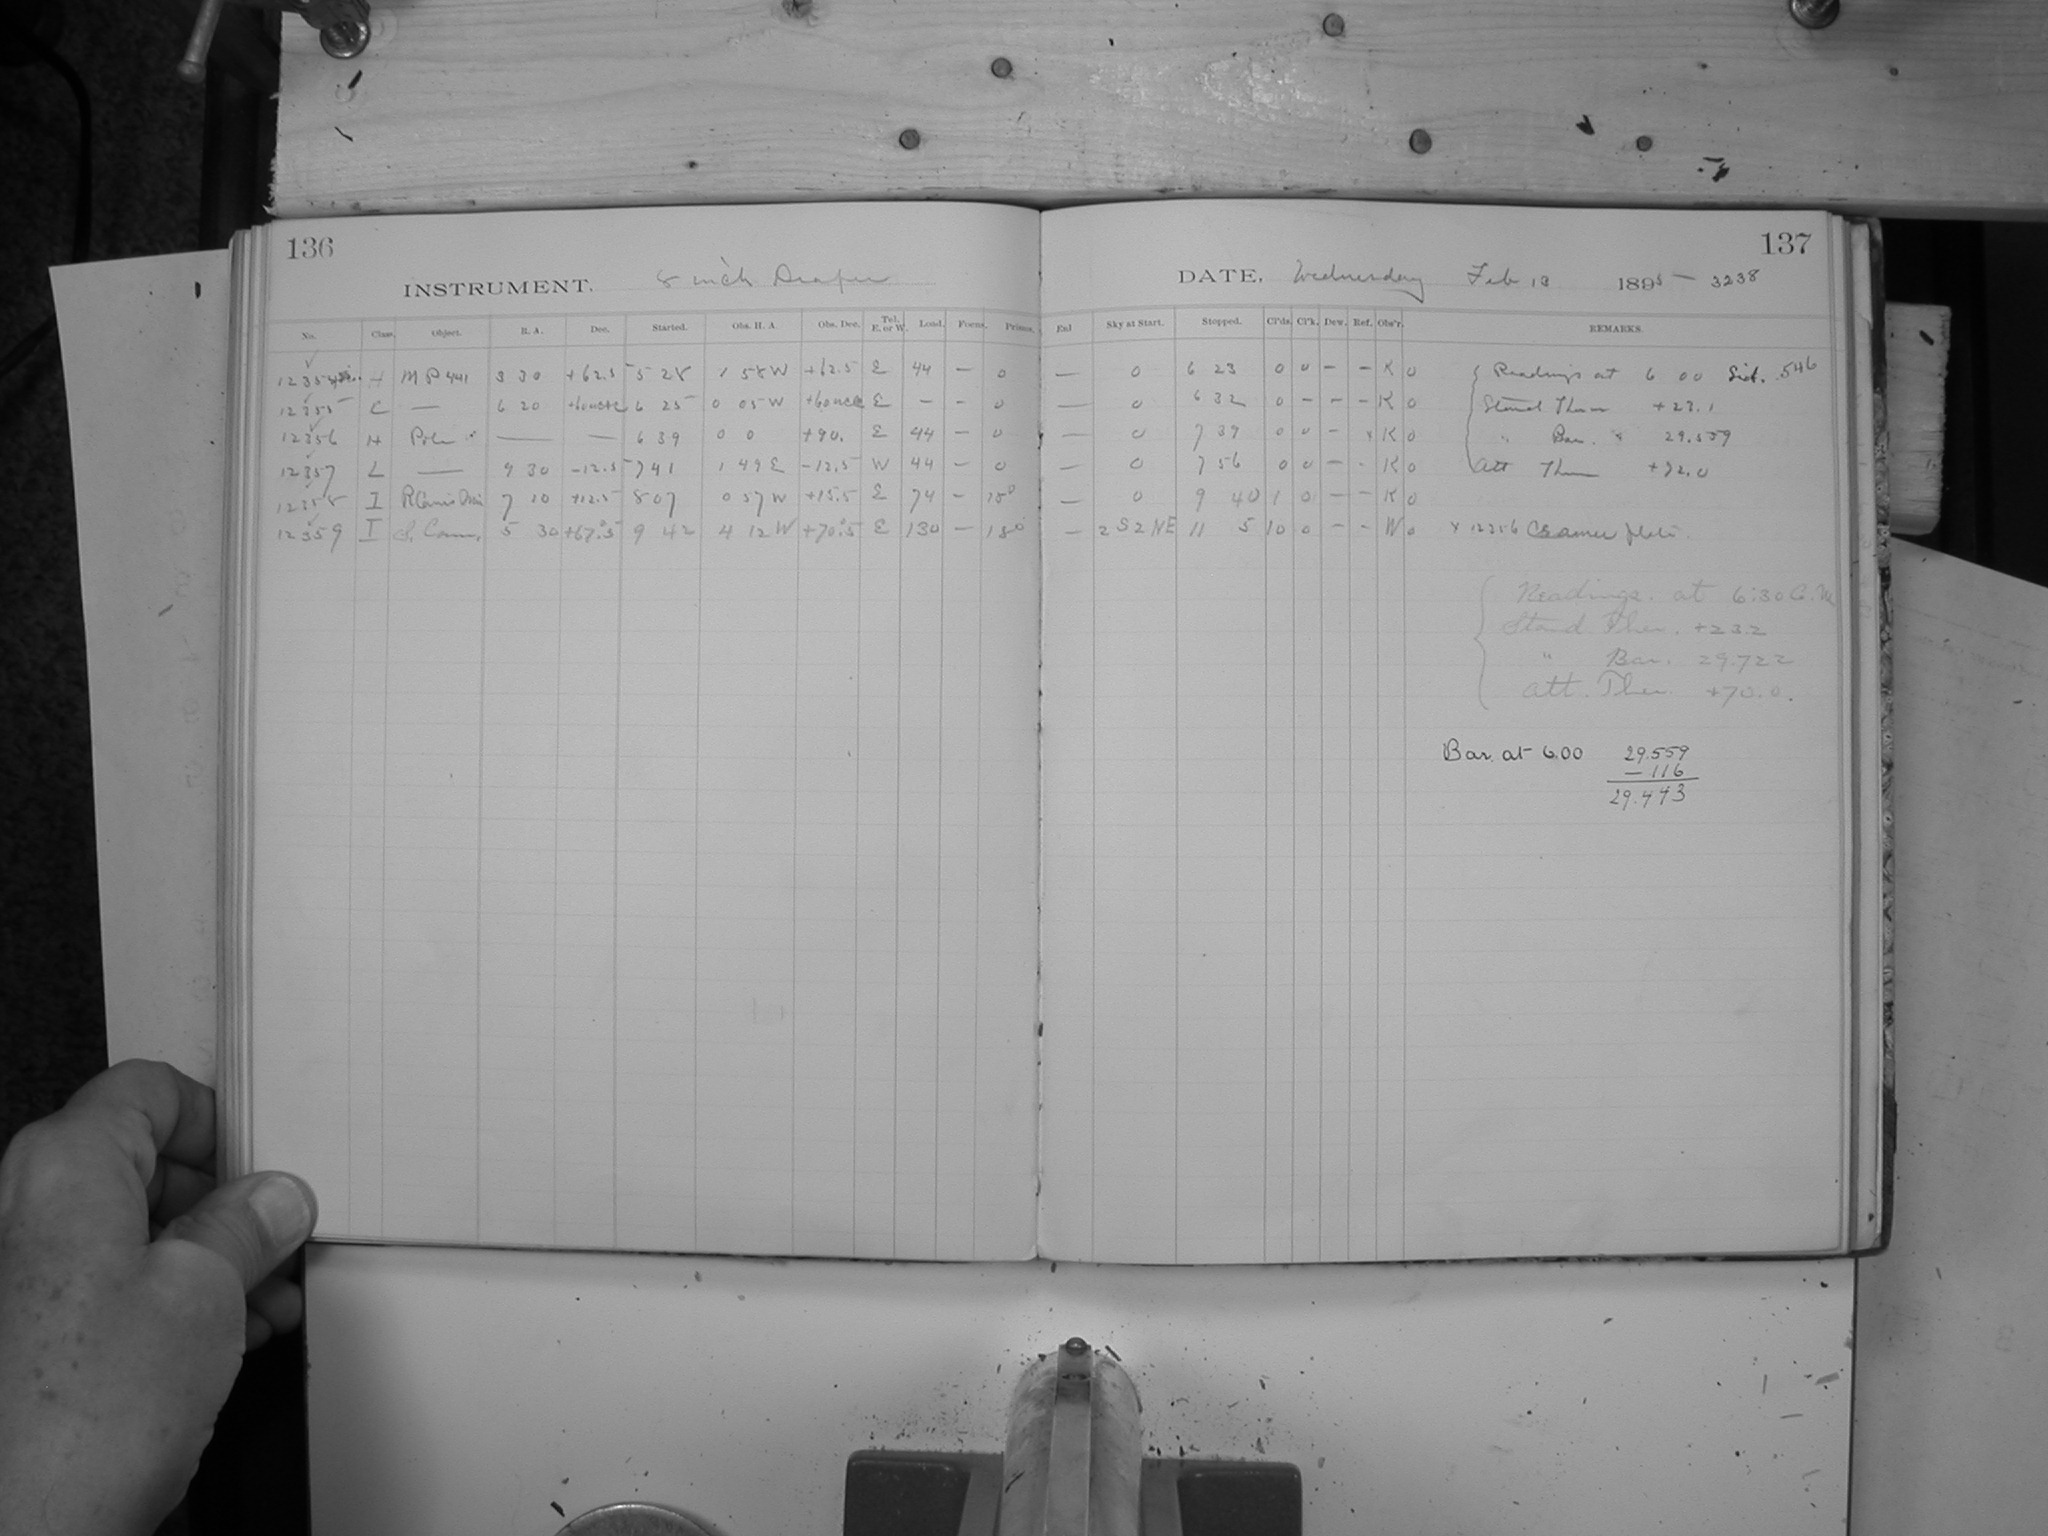 136
INSTRUMENT. 8 inch Draper
No. Class. Object. R. A. Dec. Started. Obs. H. A. Obs. Dec. Tel. E. or W. Load. Focus. Prisms.
12354 H M P 441 3 30 +62.5 5 28 1 58 W +62.5 E 44 — 0
12355 C — 6 20 6 25 0 05 W E — — 0
12356 H Pole — — 6 39 0 0 +90. E 44 — 0
12357 L — 9 30 -12.5 7 41 1 49 E -12.5 W 44 — 0
12358 I 7 10 +12.5 8 07 0 57 W +15.5 E 74 — 15°
12359 I 5 30 +67.5 9 42 4 12 W +70.5 E 130 — 15°
137
DATE. Wednesday Feb 13 1895 — 3238
Enl Sky at Start. Stopped. Cl'ds. Cl'k. Dew. Ref. Obs'r. REMARKS.
— 0 6 23 0 0 – – K 0 Readings at 6 00 Sid. 546
— 0 6 32 0 – – – K 0 Stand Ther +23.1
— 0 7 39 0 0 – x K 0 " Bar. " 29.559
— 0 7 56 0 0 – - K 0 Att Ther +72.0
— 0 9 40 1 0 – – K 0
— 2 S 2 NE 11 5 10 0 – – W 0 x 12356 Cramer plate.
Readings. at 6:30 A.M.
Stand Ther. +23.2
" Bar. 29.722
Att. Ther. +70.0.
Bar. at 6.00 29.559
— 116
29.443